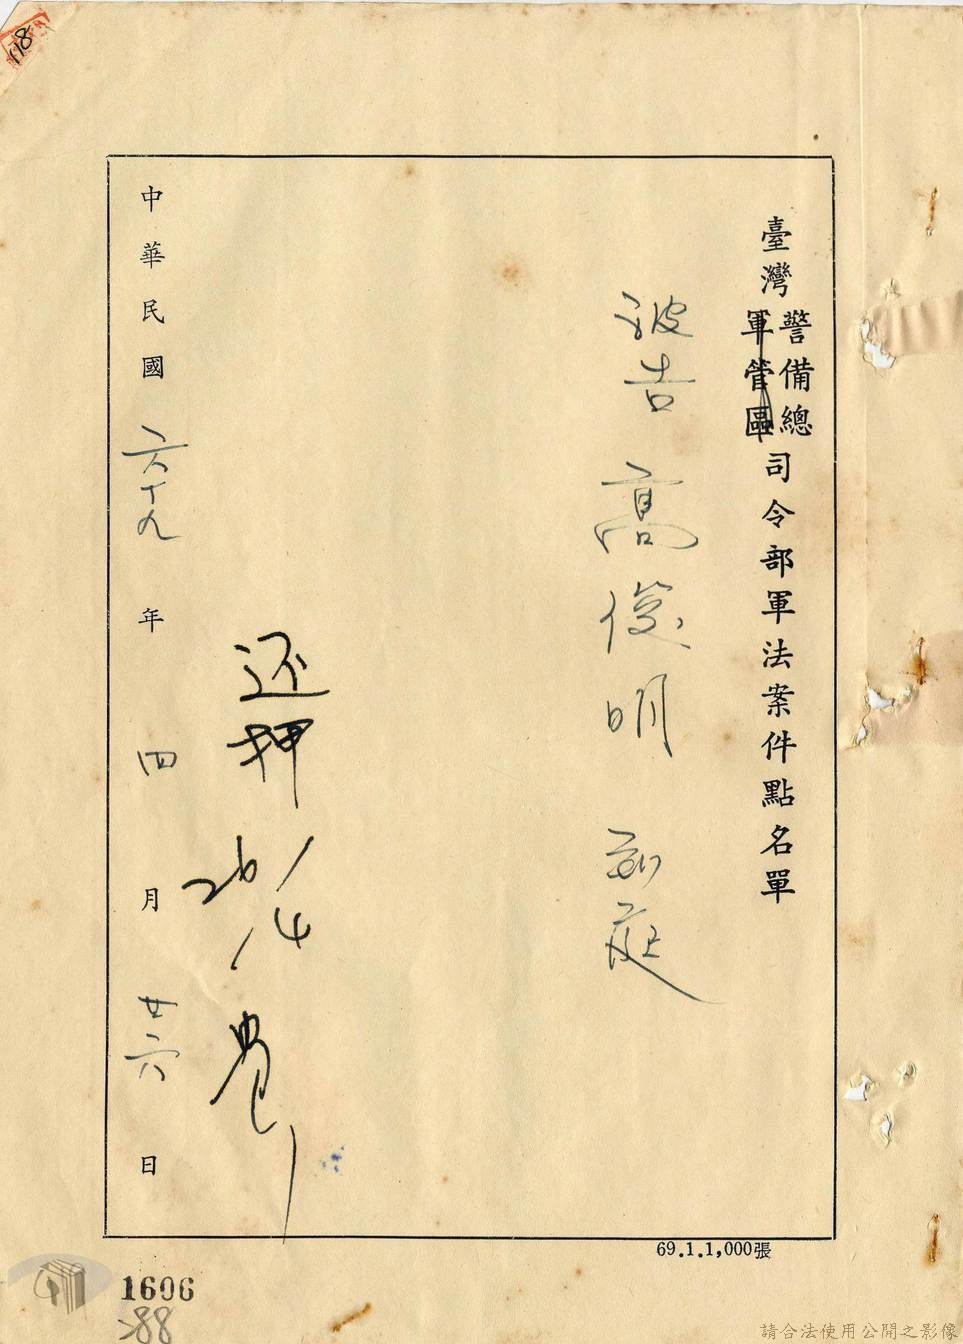 118
臺灣警備總軍管區司令部軍法案件點名單
被告 高俊明 到庭
还押
26/4
中華民國六十九年四月廿六日
69.1.1,000張
1606
88
請合法使用公開之影像